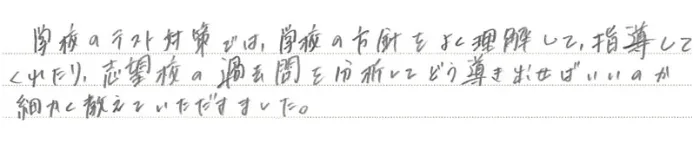 学校のテスト対策では、学校の方針をよく理解して、指導して
くれたり、志望校の過去問を分析してどう導き出せばいいのか
細かく教えていただきました。